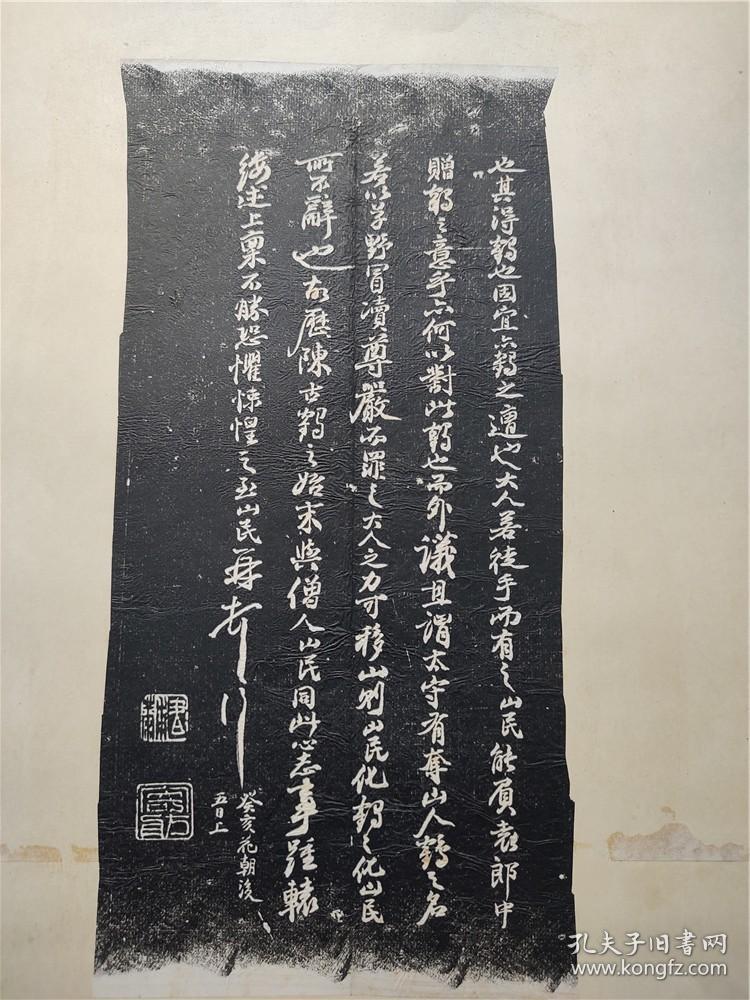 也其得鹤也固宜亦鹤之遭也大人若徒手而有之山民能負袁郎中
贈鹤之意乎亦何以對此鹤也而外議且謂太守有奪山人鶴之名
若以草野冒瀆尊嚴而罪之大人之力可移山則山民化鹤之化山民
所不辭也故歷陳古鶴之始末與僧人山民同此心志事雖轇
縷述上稟不勝恐懼悚惶之至山民再
癸亥花朝後
五日上
孔夫子旧書网
www.kongfz.com